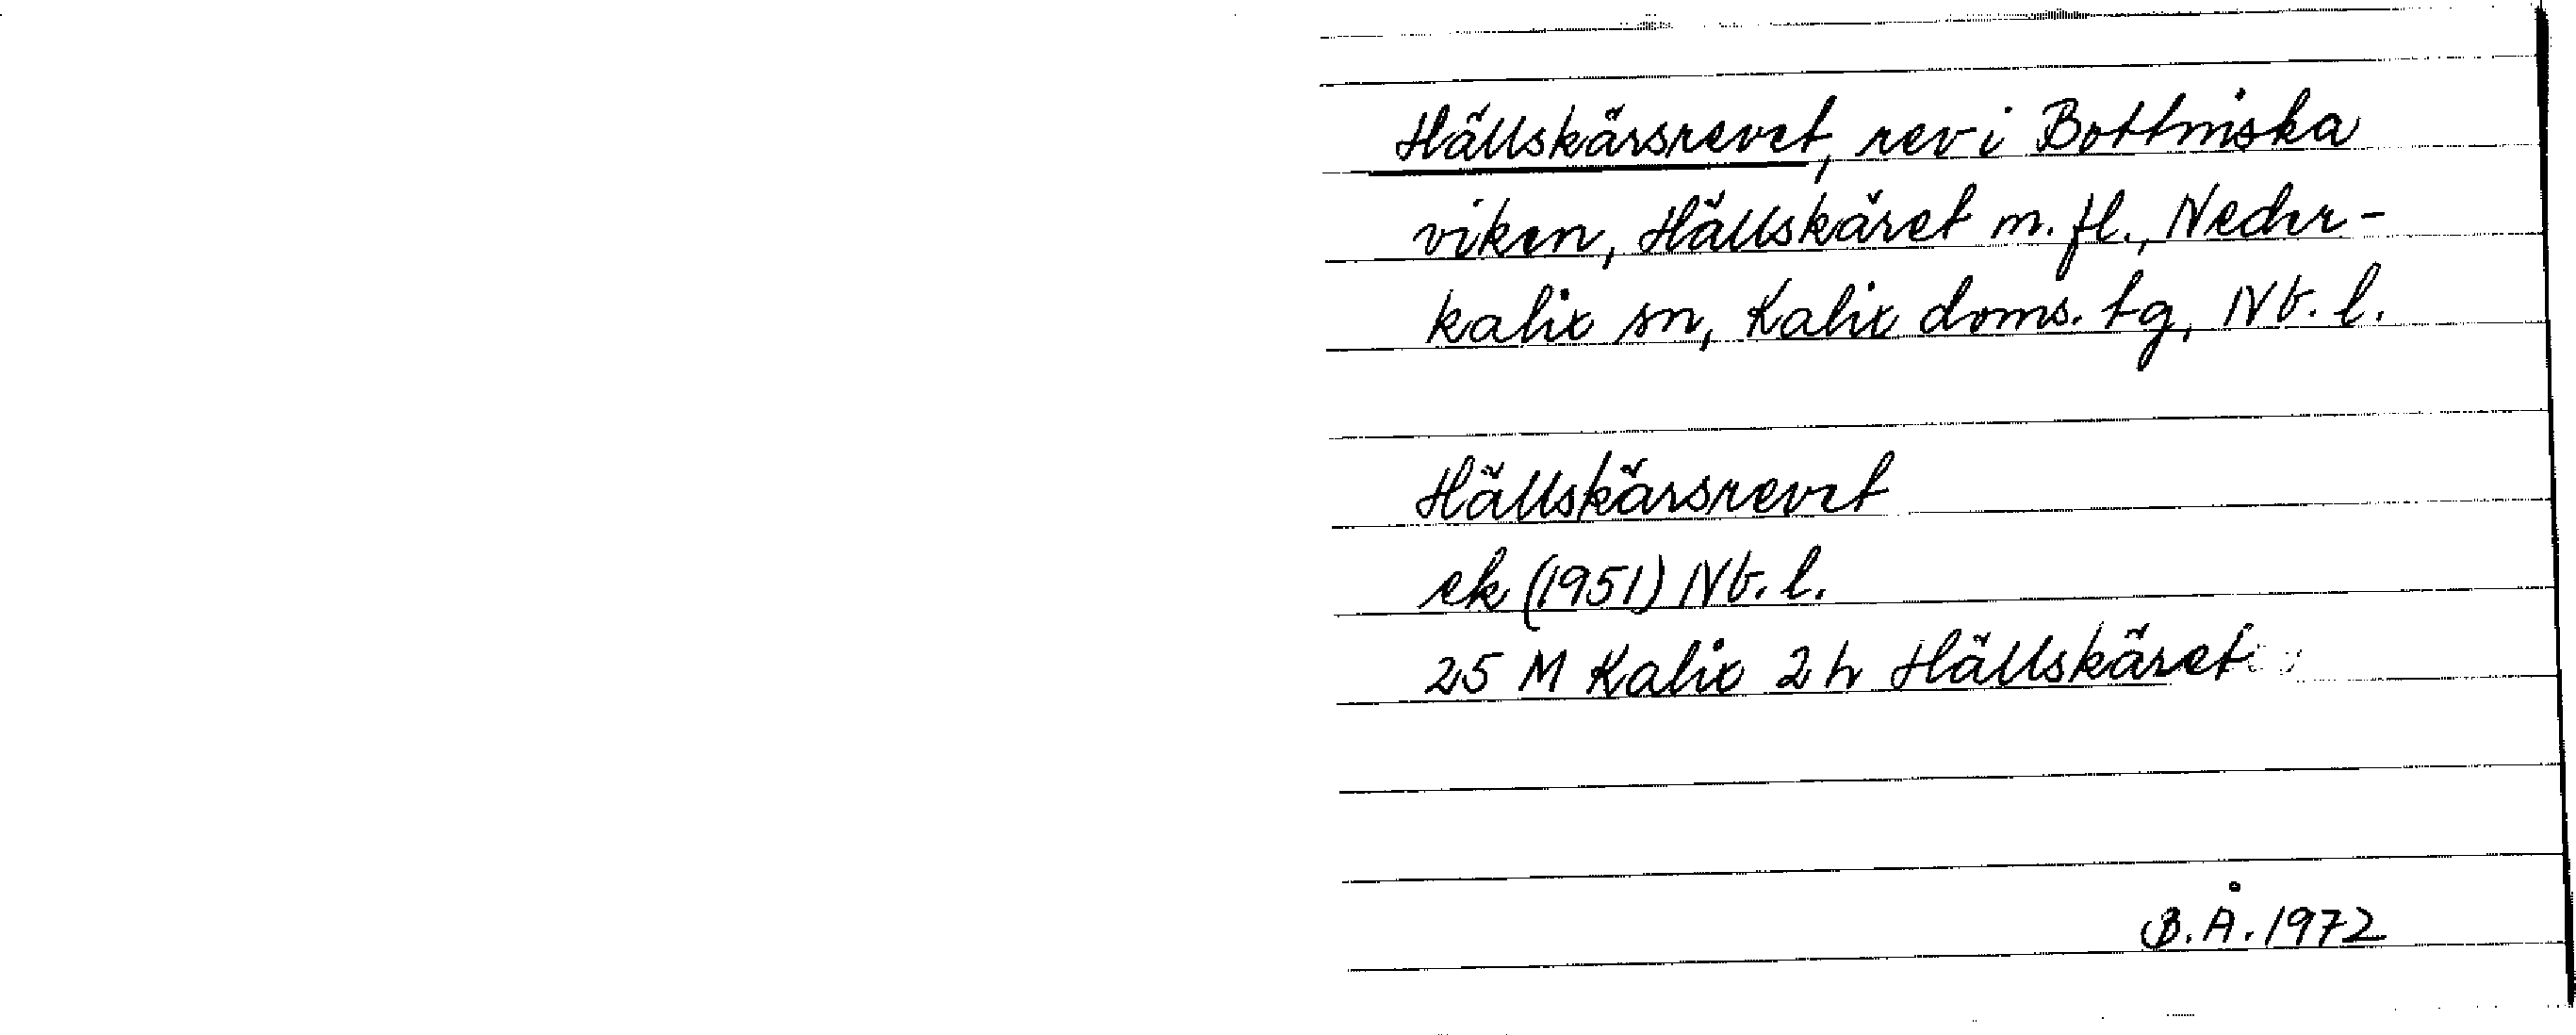 Hällskärsrevet, rev i Bottniska
viken, Hällskäret m. fl., Neder-
kalix sn, Kalix doms. tg, Nb. l.
Hällskärsrevet
ek (1951) Nb. l.
25 M Kalix 2 h Hällskäret
B. Å. 1972